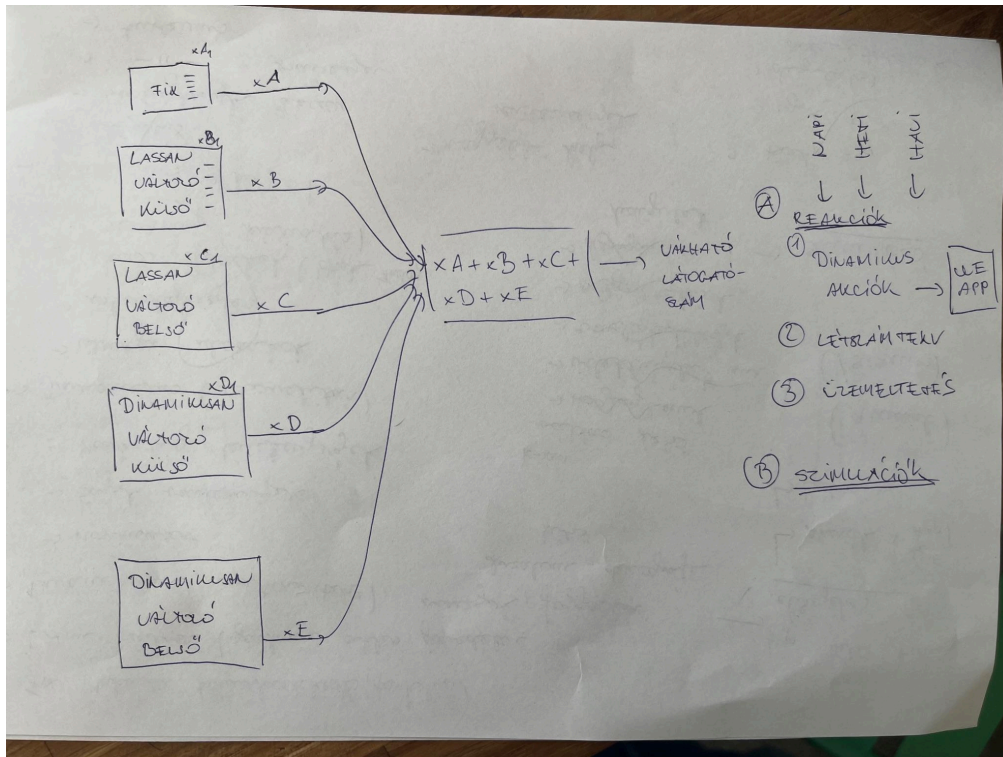 xA1
FIX
xA
xB1
LASSAN
VÁLTOZÓ
KÜLSŐ
xB
xC1
LASSAN
VÁLTOZÓ
BELSŐ
xC
xD1
DINAMIKUSAN
VÁLTOZÓ
KÜLSŐ
xD
DINAMIKUSAN
VÁLTOZÓ
BELSŐ
xE
xA + xB + xC +
xD + xE
VÁRHATÓ
LÁTOGATÓ-
SZÁM
NAPI
HETI
HAVI
A REAKCIÓK
1 DINAMIKUS
AKCIÓK
WE
APP
2 LÉTSZÁMTERV
3 ÜZEMELTETÉS
B SZIMULÁCIÓK